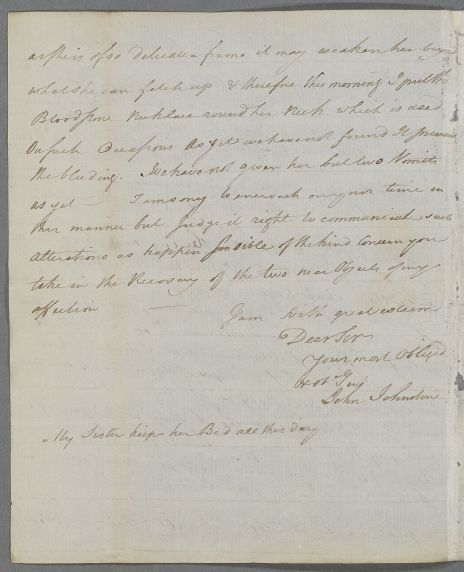 as she is of so delicate a frame it may weaken her beyond
what she can fetch up & therefore this morning I put the
Bloodstone Necklace round her Neck which is used
On such Occasions As yet we have not found It prevent
the bleeding. We have not given her but two Vomits
as yet I am sorry to encroach on your time in
this manner but Judge it right to communicate such
Alterations as happen sensible of the kind Concern you
take in the Recovery of the two near Objects of my
affection
I am with great esteem
Dear Sir
Your most Obliged
John Johnstone
My Sister keeps her Bed all this day